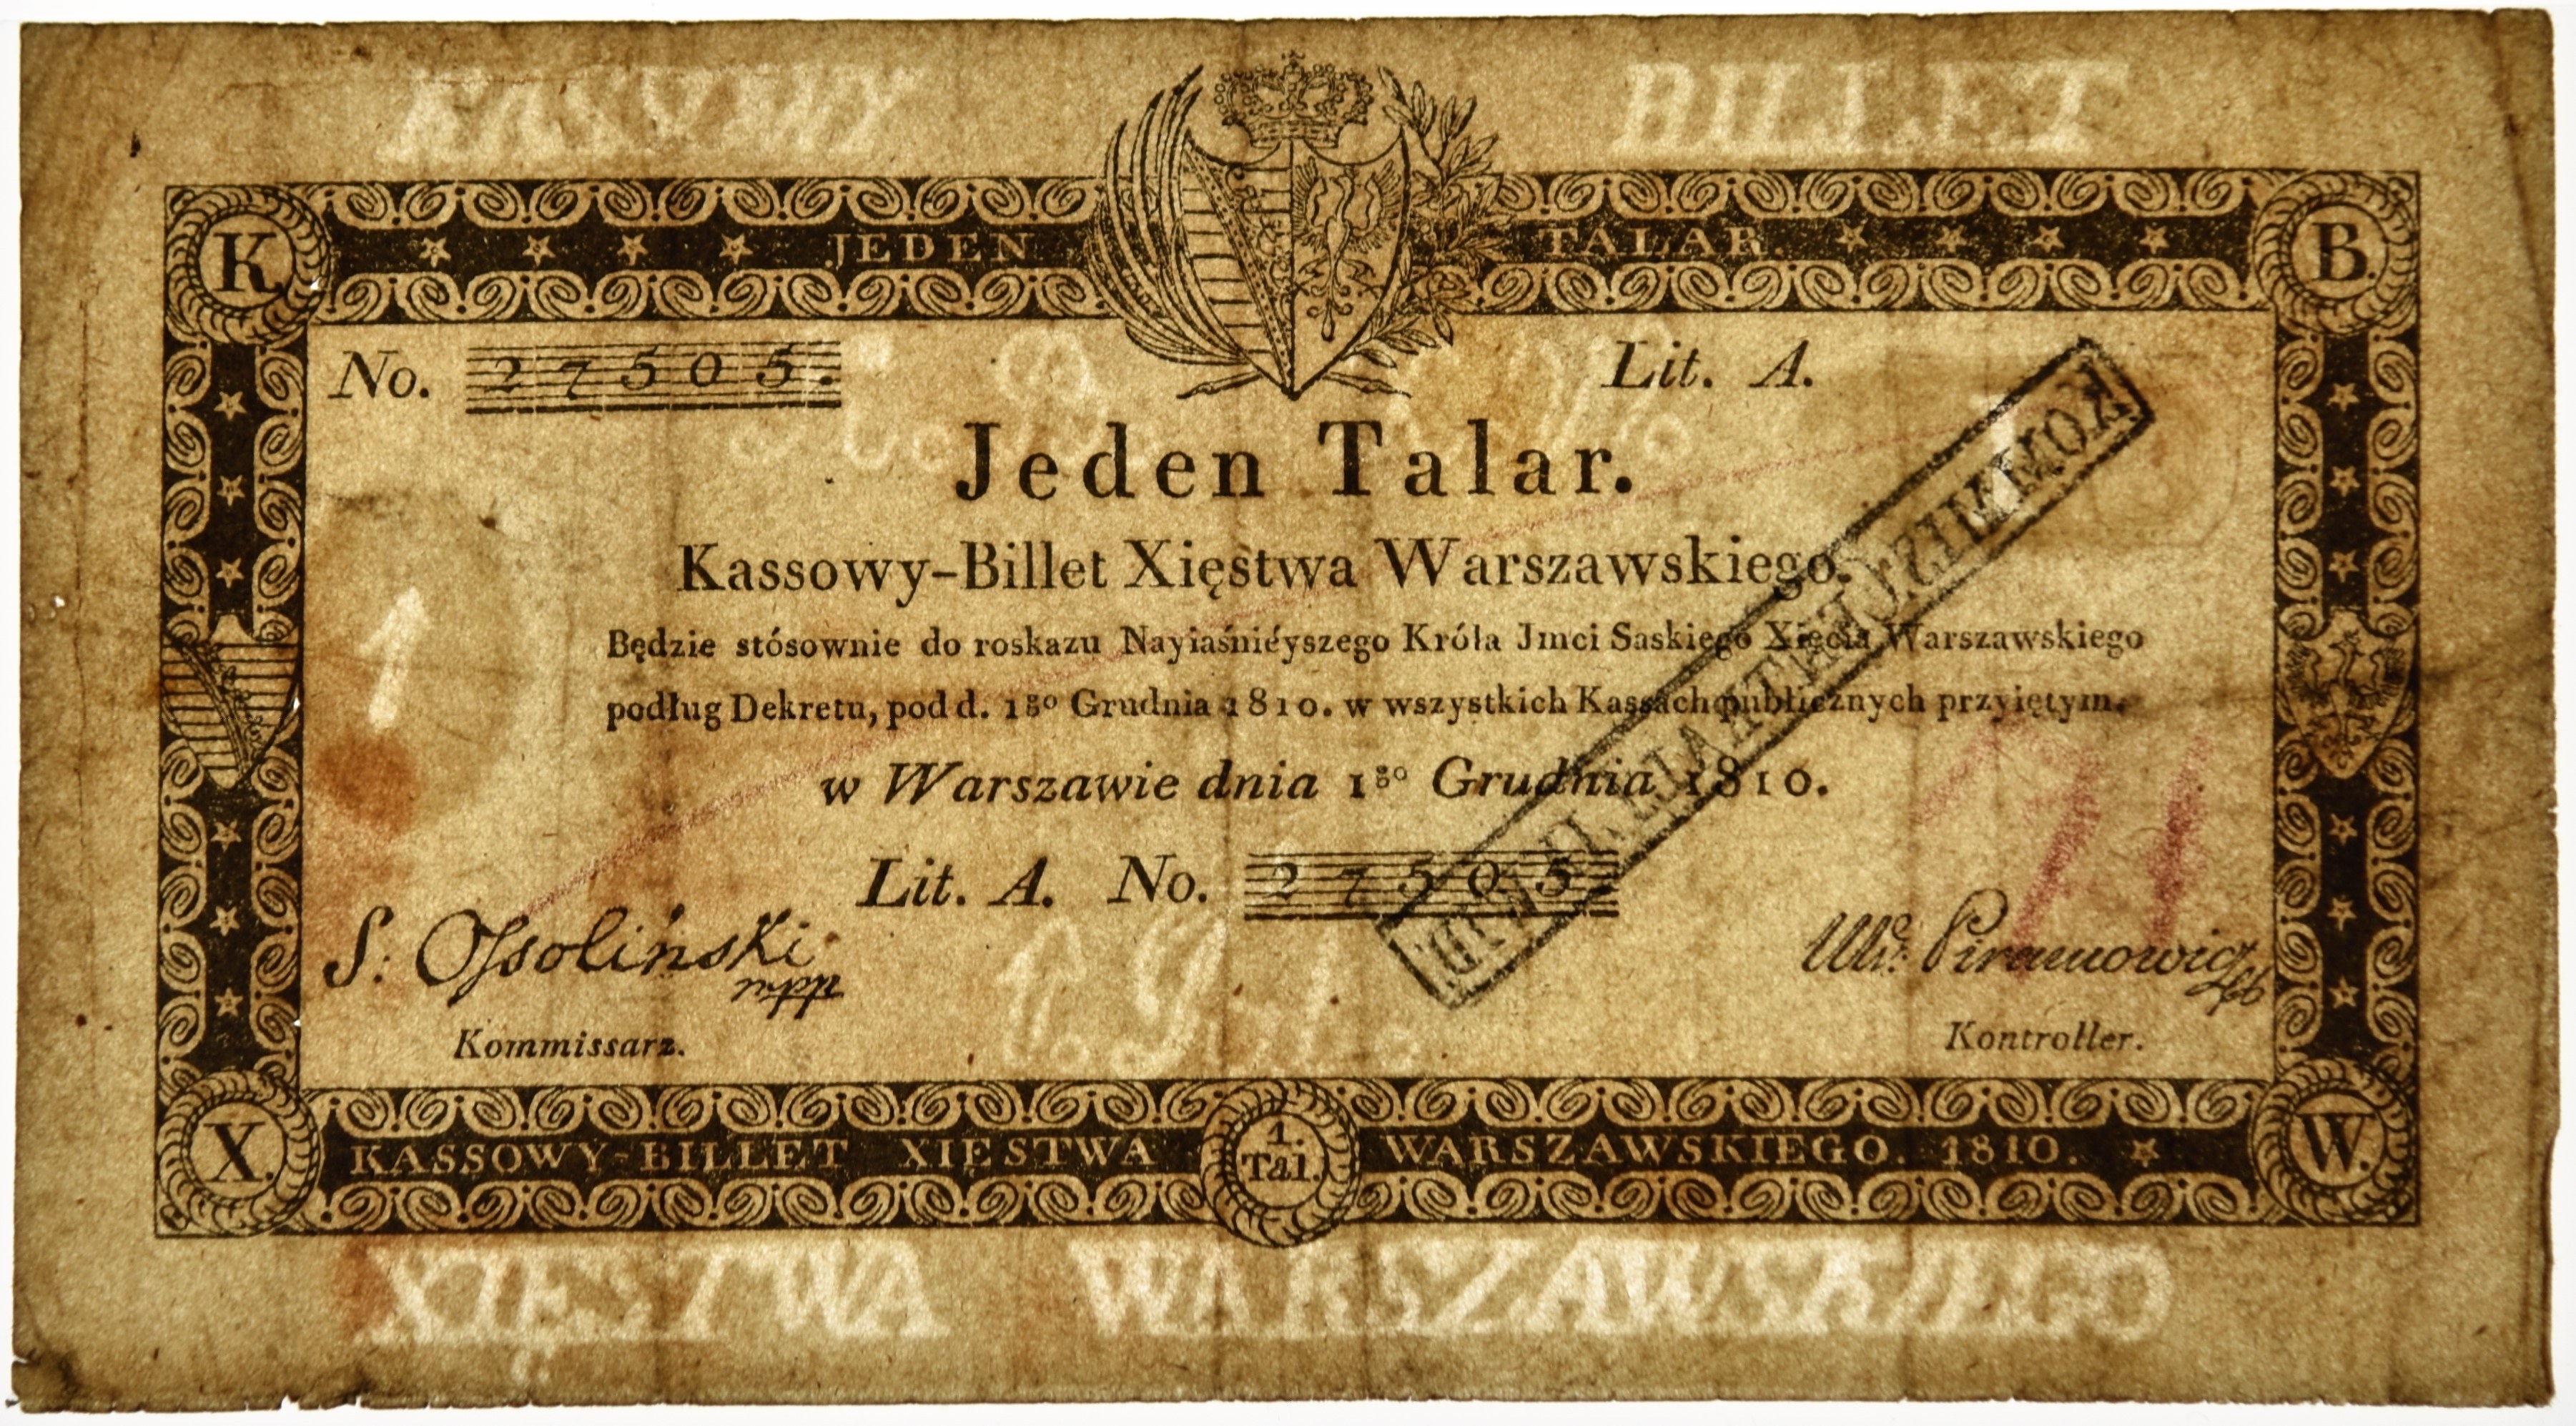 KASSOWY BILLET
K B.
JEDEN TALAR
No. 27505. Lit. A.
Jeden Talar.
Kassowy-Billet Xięstwa Warszawskiego.
Będzie stósownie do roskazu Nayiaśniéyszego Króla Jmci Saskiego Xięcia Warszawskiego
podług Dekretu, pod d. 1go Grudnia 1810. w wszystkich Kassach publicznych przyiętym.
1
w Warszawie dnia 1go Grudnia 1810.
Lit. A. No. 27505
S: Ossoliński
mpp
Piramowicz
Kommissarz. Kontroller.
1. Tal.
X. KASSOWY-BILLET XIĘSTWA 1. Tal. WARSZAWSKIEGO. 1810. W.
XIĘSTWA WARSZAWSKIEGO